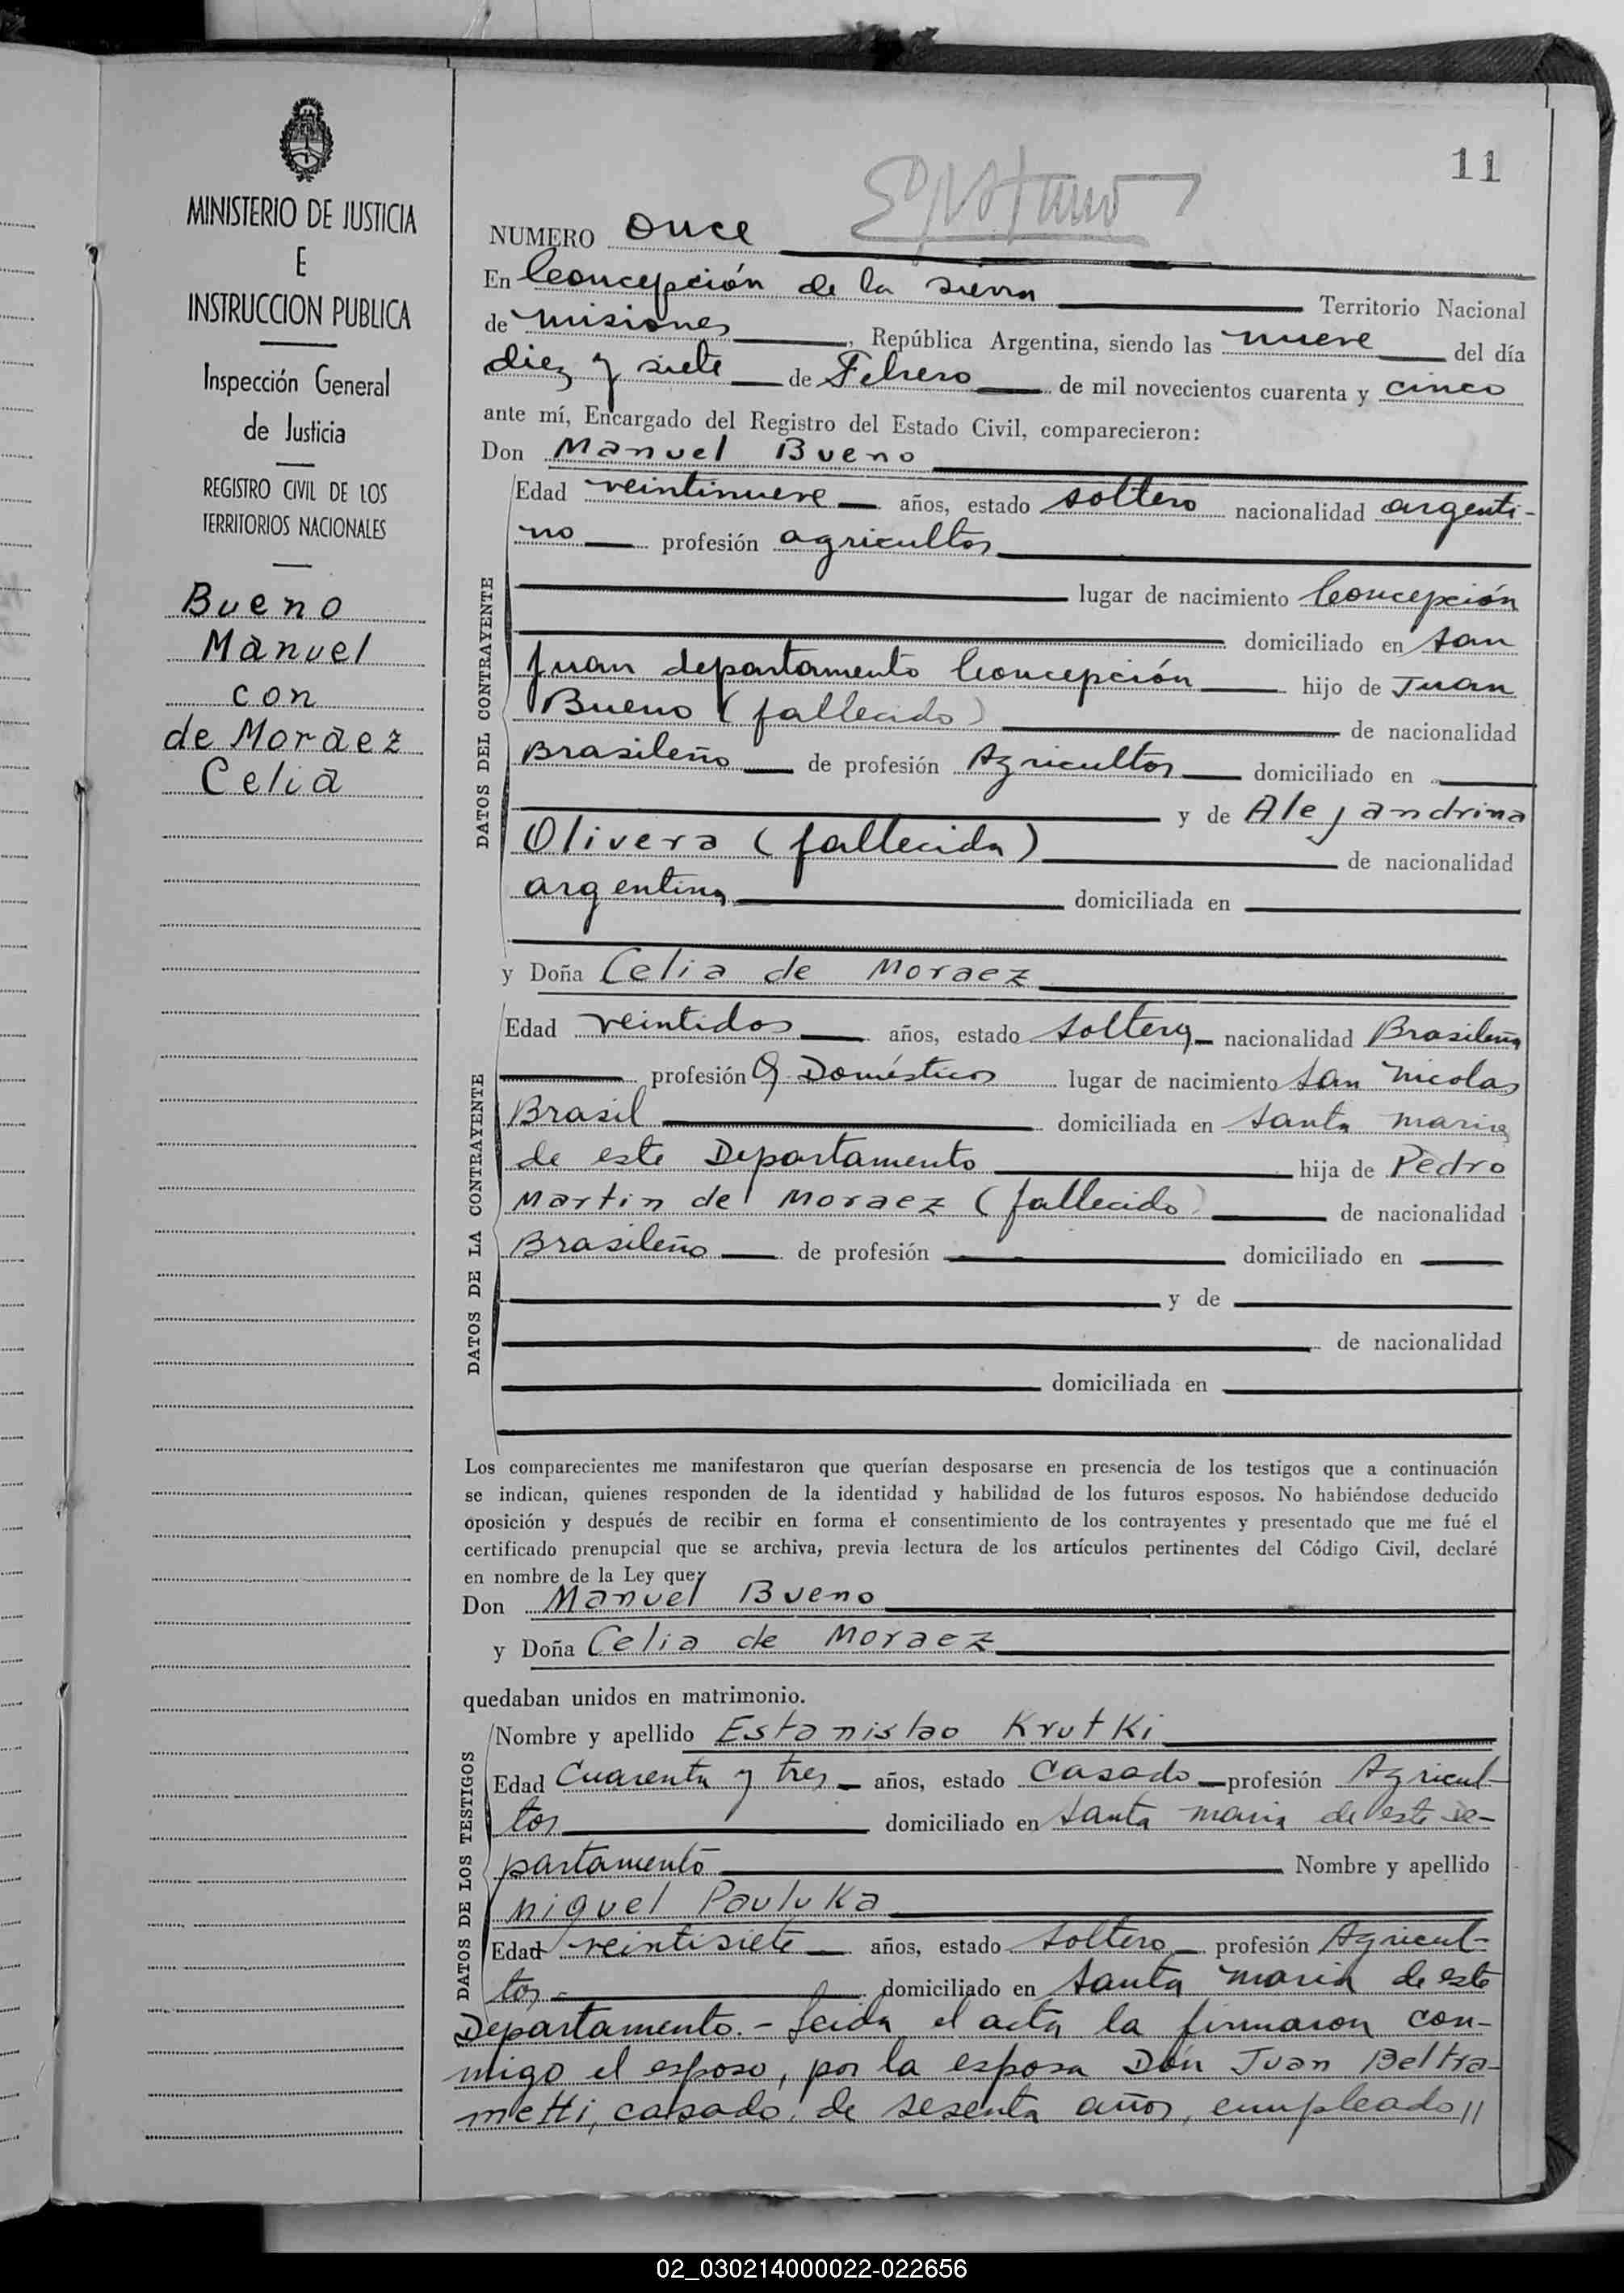 11
MINISTERIO DE JUSTICIA
E
INSTRUCCION PUBLICA
Inspección General
de Justicia
REGISTRO CIVIL DE LOS
TERRITORIOS NACIONALES
Bueno
Manuel
con
de Moraez
Celia
NUMERO Once
En Concepción de la sierra Territorio Nacional
de misiones, República Argentina, siendo las nueve del día
diez y siete de Febrero de mil novecientos cuarenta y cinco
ante mí, Encargado del Registro del Estado Civil, comparecieron:
Don Manuel Bueno
DATOS DEL CONTRAYENTE
Edad veintinueve años, estado soltero nacionalidad argenti-
no profesión agricultor
lugar de nacimiento Concepción
domiciliado en San
Juan departamento Concepción hijo de Juan
Bueno (fallecido) de nacionalidad
Brasileño de profesión Agricultor domiciliado en
y de Alejandrina
Olivera (fallecida) de nacionalidad
argentina domiciliada en
y Doña Celia de Moraez
DATOS DE LA CONTRAYENTE
Edad veintidos años, estado soltera nacionalidad Brasileña
profesión Q. Domésticos lugar de nacimiento San Nicolas
Brasil domiciliada en Santa maria
de este Departamento hija de Pedro
Martin de Moraez (fallecido) de nacionalidad
Brasileño de profesión domiciliado en
y de
de nacionalidad
domiciliada en
Los comparecientes me manifestaron que querían desposarse en presencia de los testigos que a continuación
se indican, quienes responden de la identidad y habilidad de los futuros esposos. No habiéndose deducido
oposición y después de recibir en forma el consentimiento de los contrayentes y presentado que me fué el
certificado prenupcial que se archiva, previa lectura de los artículos pertinentes del Código Civil, declaré
en nombre de la Ley que:
Don Manuel Bueno
y Doña Celia de Moraez
quedaban unidos en matrimonio.
DATOS DE LOS TESTIGOS
Nombre y apellido Estanislao Krutki
Edad Cuarenta y tres años, estado Casado profesión Agricul-
tor domiciliado en Santa maria de este De-
partamento Nombre y apellido
Miguel Pauluka
Edad veintisiete años, estado soltero profesión Agricul-
tor domiciliado en Santa maria de este
Departamento.- Leida el acta la firmaron con-
migo el esposo, por la esposa Don Juan Beltra-
metti, casado, de sesenta años, empleado //
02_030214000022-022656